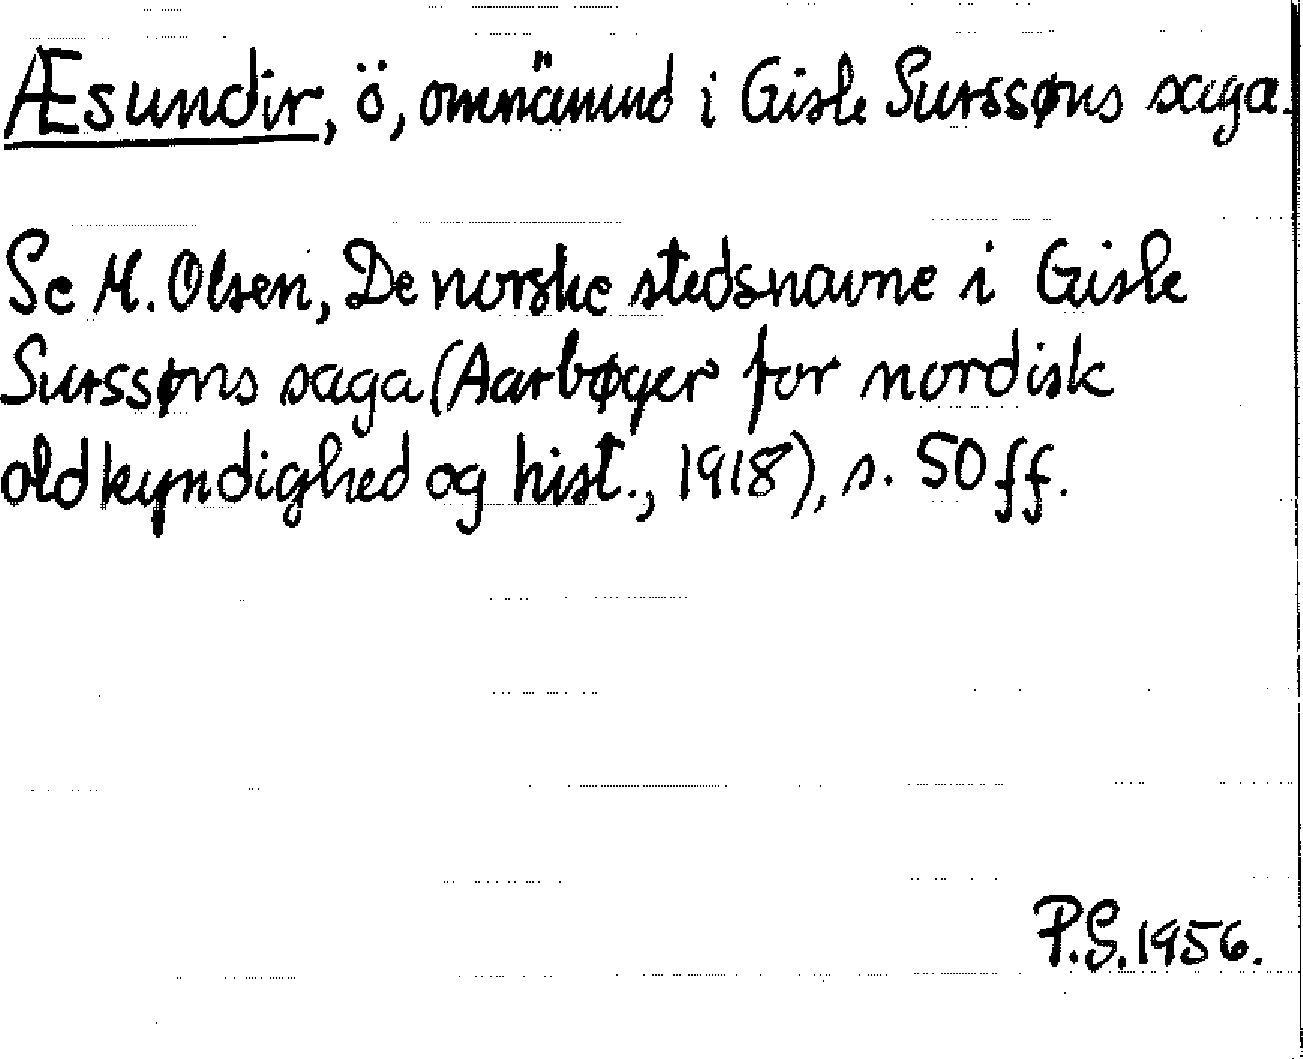 Æsundir, ö, omnämnd i Gisle Surssøns saga.
Se M. Olsen, De norske stedsnavne i Gisle
Surssøns saga (Aarbøger for nordisk
oldkyndighed og hist., 1918), s. 50 ff.
P.S. 1956.